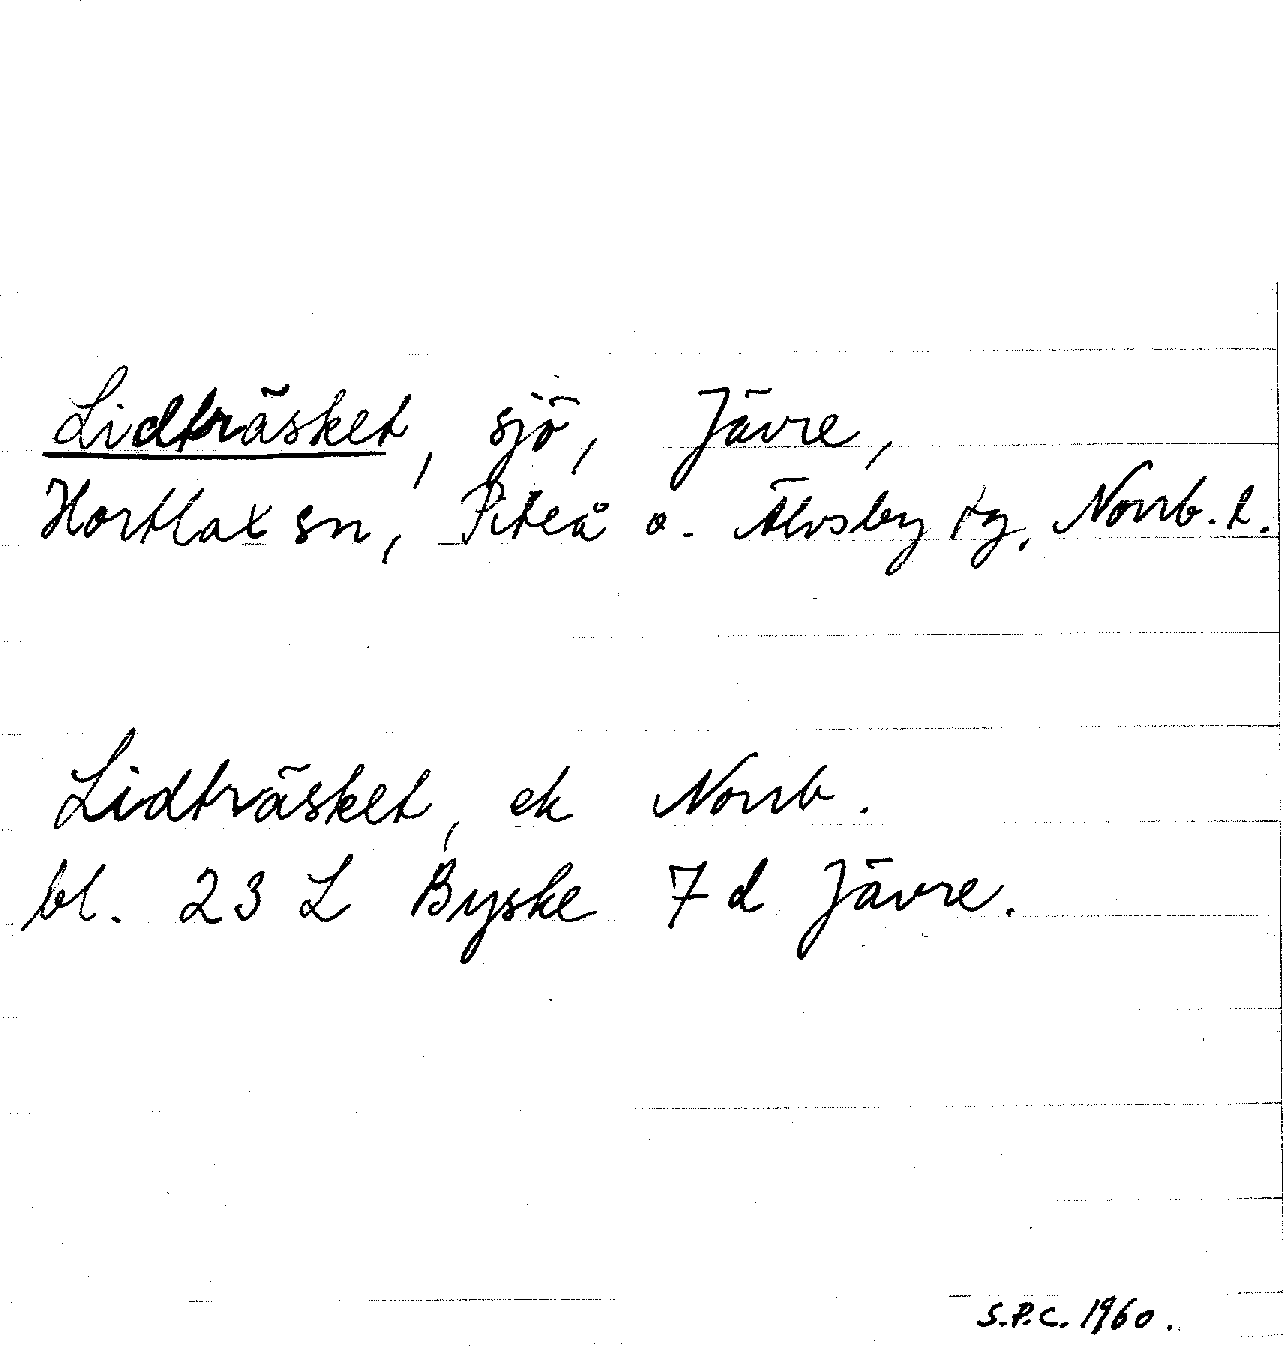 Lidträsket, sjö, Jävre,
Hortlax sn, Piteå o. Älvsby tg, Norrb. l.
Lidträsket, ek Norrb.
bl. 23 L Byske 7 d Jävre.
S.P.C. 1960.